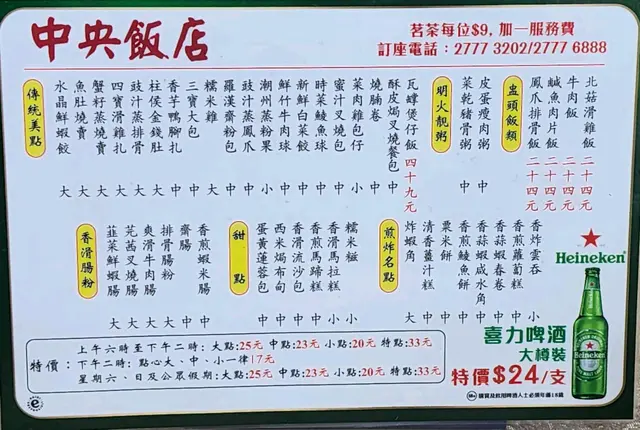 中央飯店
茗茶每位$9, 加一服務費
訂座電話：2777 3202/2777 6888
盅頭飯類
北菇滑雞飯 二十四元
牛肉飯 二十四元
鹹魚肉片飯 二十四元
鳳爪排骨飯 二十四元
明火靚粥
皮蛋瘦肉粥 中
菜乾豬骨粥 中
瓦罉煲仔飯 四十九元
傳統美點
酥皮焗叉燒餐包 中
燒腩卷 中
菜肉雞包仔 小
蜜汁叉燒包 中
時菜鯪魚球 中
新鮮白菜餃 中
鮮竹牛肉球 中
潮州蒸粉果 小
豉汁蒸鳳爪 中
羅漢齋粉包 中
糯米雞 大
三寶大包 中
香芋鴨腳扎 中
柱侯金錢肚 大
豉汁蒸排骨 大
四寶滑雞扎 大
蟹籽蒸燒賣 大
魚肚燒賣 大
水晶鮮蝦餃 大
煎炸名點
香炸雲吞 小
香煎蘿蔔糕 中
香蒜蝦春卷 中
香蒜蝦咸水角 中
香煎鯪魚餅 中
粟米餅 中
清香薑汁糕 中
炸蝦角 大
甜點
糯米糍 小
香滑馬拉糕 小
香煎馬蹄糕 中
香滑流沙包 中
西米焗布甸 中
蛋黃蓮蓉包 中
香滑腸粉
香煎蝦米腸 中
齋腸 中
排骨腸粉 大
爽滑牛肉腸 大
芫茜叉燒腸 大
韮菜鮮蝦腸 大
特價：
上午六時至下午二時：大點:25元 中點:23元 小點:20元 特點:33元
下午二時：點心大、中、小一律17元
星期六、日及公眾假期：大點:25元 中點:23元 小點:20元 特點:33元
Heineken
Heineken
喜力啤酒
大樽裝
特價$24/支
18+ 購買及飲用啤酒人士必須年滿18歲
e